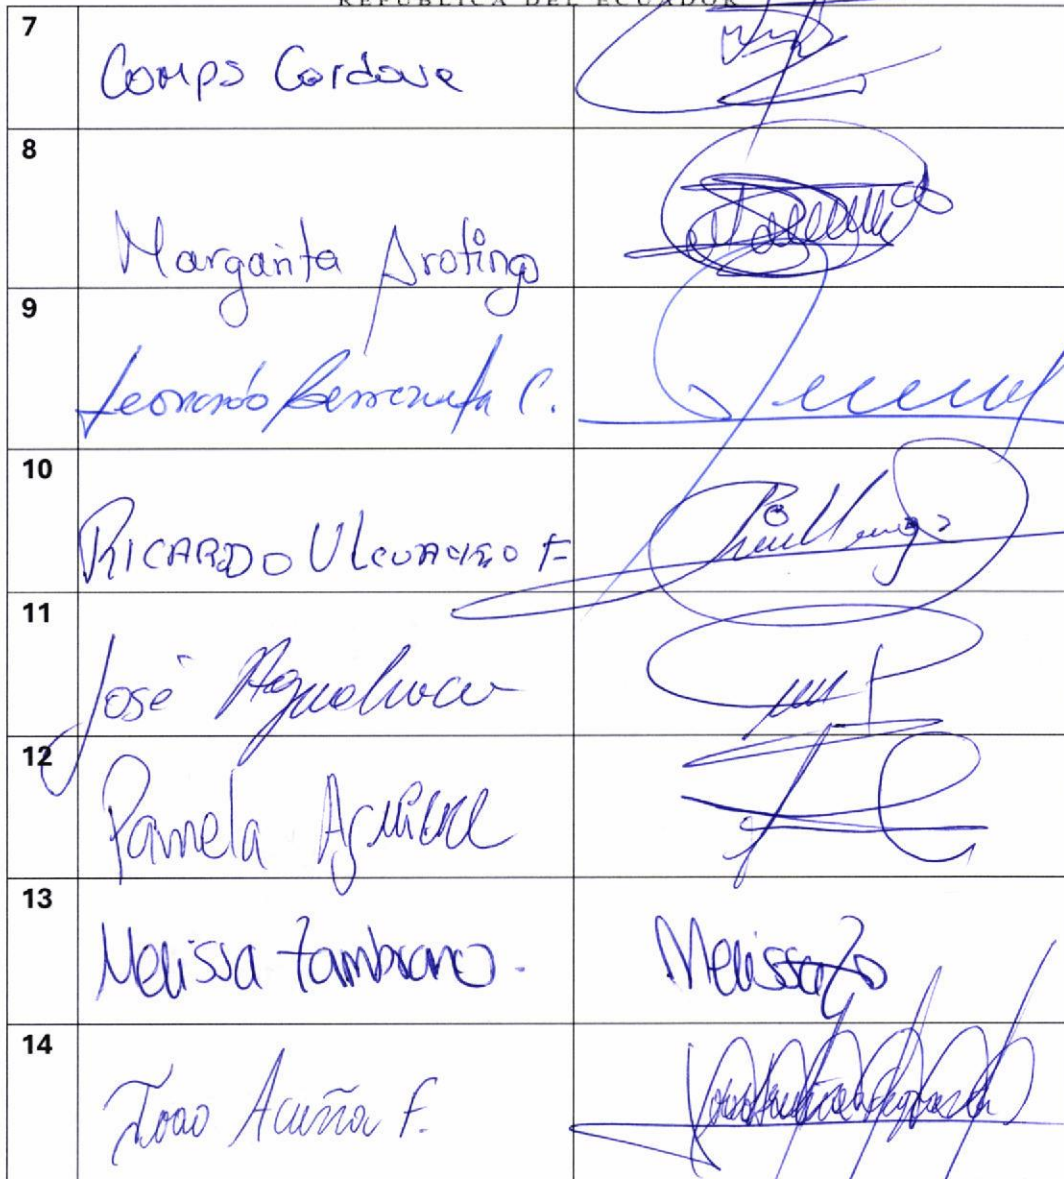 REPÚBLICA DEL ECUADOR
7
Comps Cordova
8
Margarita Arotingo
9
Leonardo Berrezueta C.
10
RICARDO ULCUANGO F
11
José Agualsaca
12
Pamela Aguirre
13
Melissa Zambrano. Melissa Zo
14
Joao Acuña F.